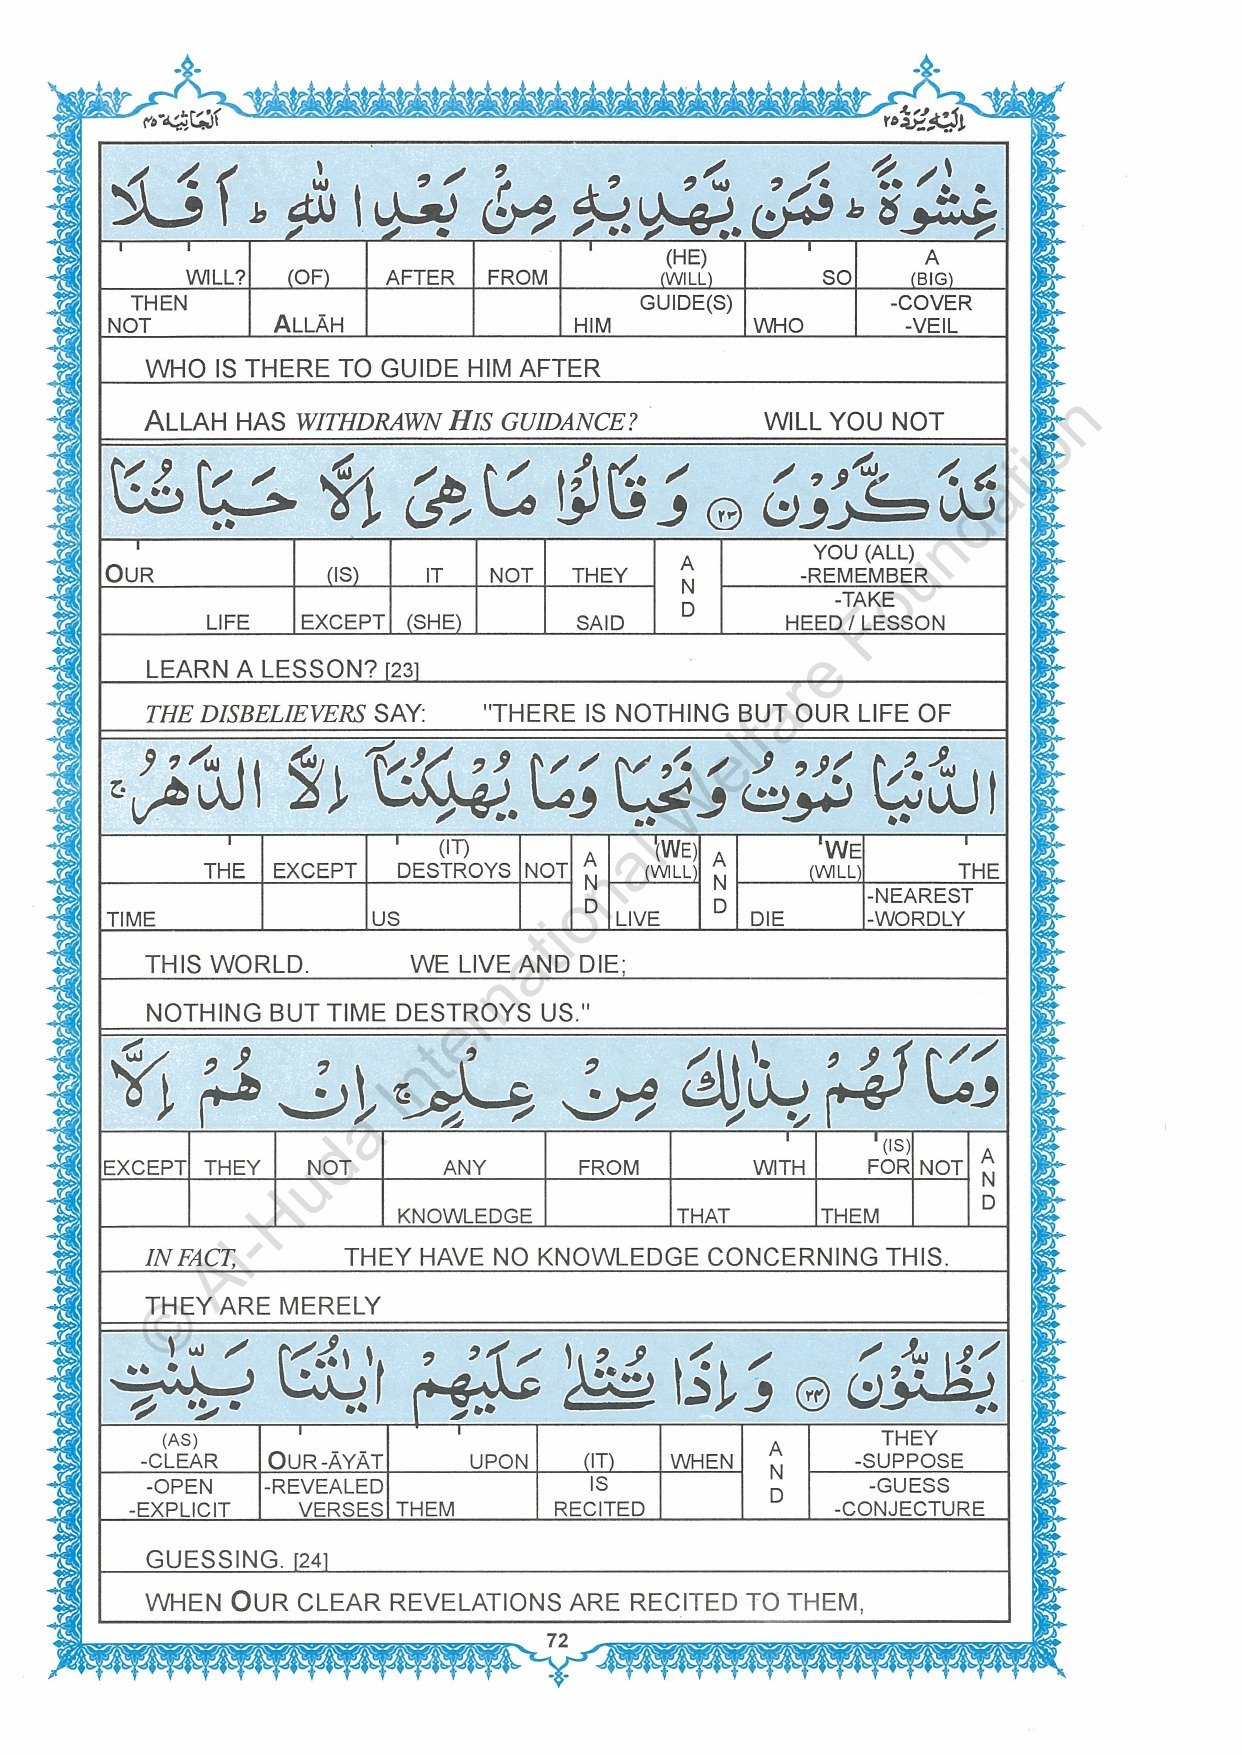 الجاثية ٤٥ اليه يرد ٢٥
غِشٰوَةً ؕ فَمَنْ يَّهْدِيْهِ مِنْۢ بَعْدِ اللّٰهِ ؕ اَفَلَا
WILL? (OF) AFTER FROM (HE) (WILL) SO A (BIG)
THEN NOT ALLĀH GUIDE(S) HIM WHO -COVER -VEIL
WHO IS THERE TO GUIDE HIM AFTER
ALLAH HAS WITHDRAWN HIS GUIDANCE? WILL YOU NOT
تَذَكَّرُوْنَ ۝۲۳ وَ قَالُوْا مَا هِىَ اِلَّا حَيَاتُنَا
OUR (IS) IT NOT THEY AND YOU (ALL) -REMEMBER
LIFE EXCEPT (SHE) SAID -TAKE HEED / LESSON
LEARN A LESSON? [23]
THE DISBELIEVERS SAY: "THERE IS NOTHING BUT OUR LIFE OF
الدُّنْيَا نَمُوْتُ وَنَحْيَا وَمَا يُهْلِكُنَاۤ اِلَّا الدَّهْرُ ۚ
THE EXCEPT (IT) DESTROYS NOT AND (WE) (WILL) AND WE (WILL) THE
TIME US LIVE DIE -NEAREST -WORDLY
THIS WORLD. WE LIVE AND DIE;
NOTHING BUT TIME DESTROYS US."
وَمَا لَهُمْ بِذٰلِكَ مِنْ عِلْمٍ ۚ اِنْ هُمْ اِلَّا
EXCEPT THEY NOT ANY FROM WITH (IS) FOR NOT AND
KNOWLEDGE THAT THEM
IN FACT, THEY HAVE NO KNOWLEDGE CONCERNING THIS.
THEY ARE MERELY
يَظُنُّوْنَ ۝۲۴ وَ اِذَا تُتْلٰى عَلَيْهِمْ اٰيٰتُنَا بَيِّنٰتٍ
(AS) -CLEAR OUR-ĀYĀT UPON (IT) WHEN AND THEY -SUPPOSE
-OPEN -EXPLICIT -REVEALED VERSES THEM IS RECITED -GUESS -CONJECTURE
GUESSING. [24]
WHEN OUR CLEAR REVELATIONS ARE RECITED TO THEM,
72
© Al-Huda International Welfare Foundation